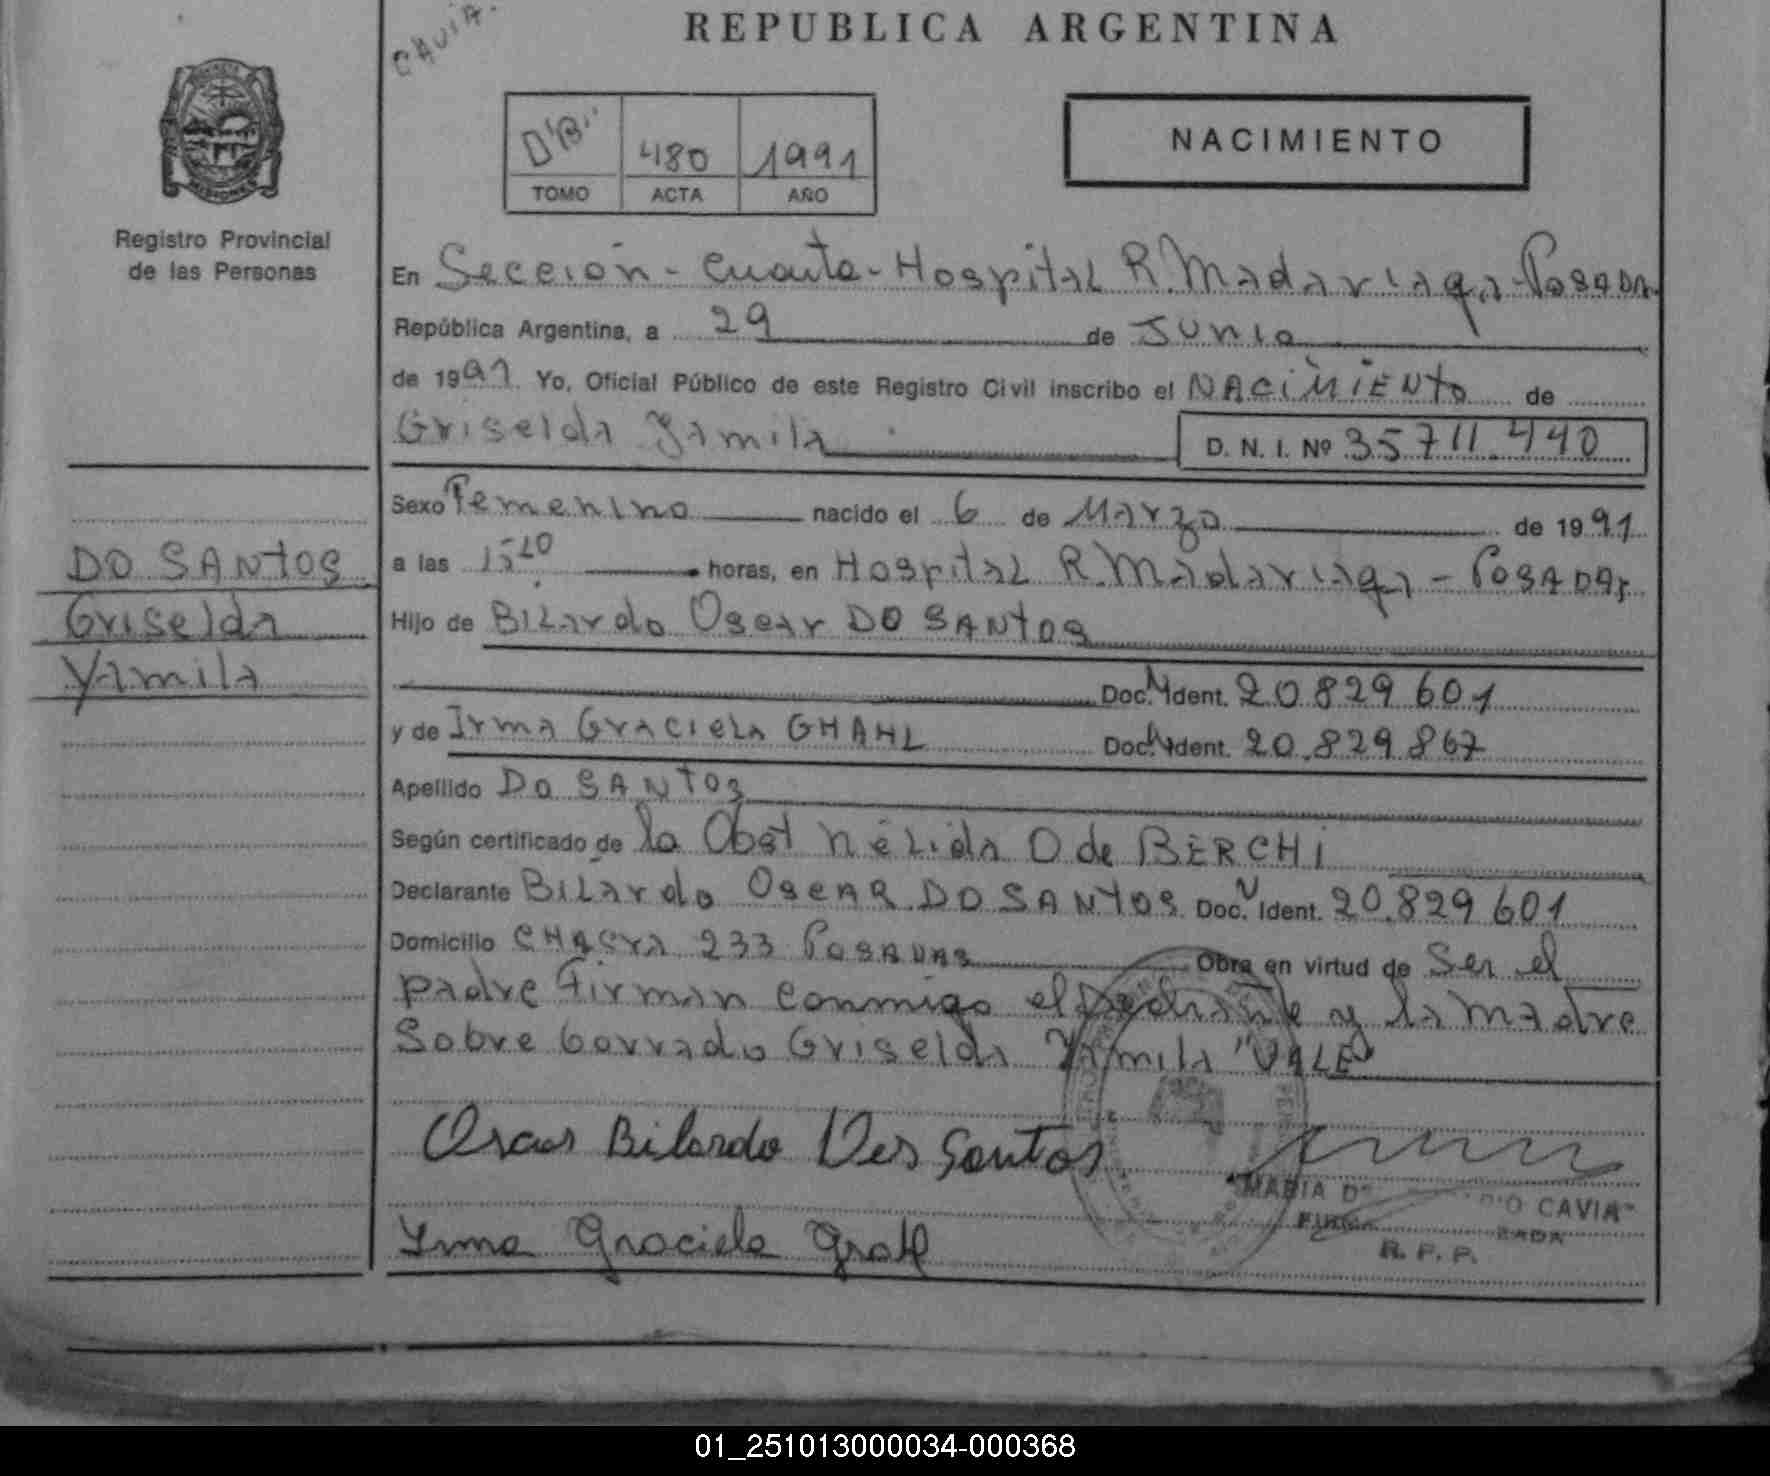 CAVIA.
REPUBLICA ARGENTINA
D"B"
480
1991
TOMO
ACTA
AÑO
NACIMIENTO
Registro Provincial
de las Personas
En Sección - Cuarta - Hospital R. Madariaga - Posadas
República Argentina, a 29 de Junio
de 1991. Yo, Oficial Público de este Registro Civil inscribo el NACiMiENto de
Griselda Yamila
D. N. I. Nº 35711.440
Sexo Femenino nacido el 6 de Marzo de 1991
a las horas, en Hospital R. Madariaga - Posadas
Hijo de Bilardo Oscar DO SANtos
Doc. N Ident. 20.829.601
y de Irma Graciela GHAHL Doc. N Ident. 20.829.867
Apellido Do SANtos
Según certificado de la Obst Nélida O de BERCHi
Declarante Bilardo OscAR DO SANtos Doc. N Ident. 20.829.601
Domicilio CHAcra 233 PosADAs Obra en virtud de Ser el
padre Firman conmigo el y la madre
Sobre borrado Griselda Yamila "VALE"
DO SANtos
Griselda
Yamila
Oscar Bilardo Dos Santos
Irma Graciela Grahl
MARIA CAVIA
R. P. P.
01_251013000034-000368